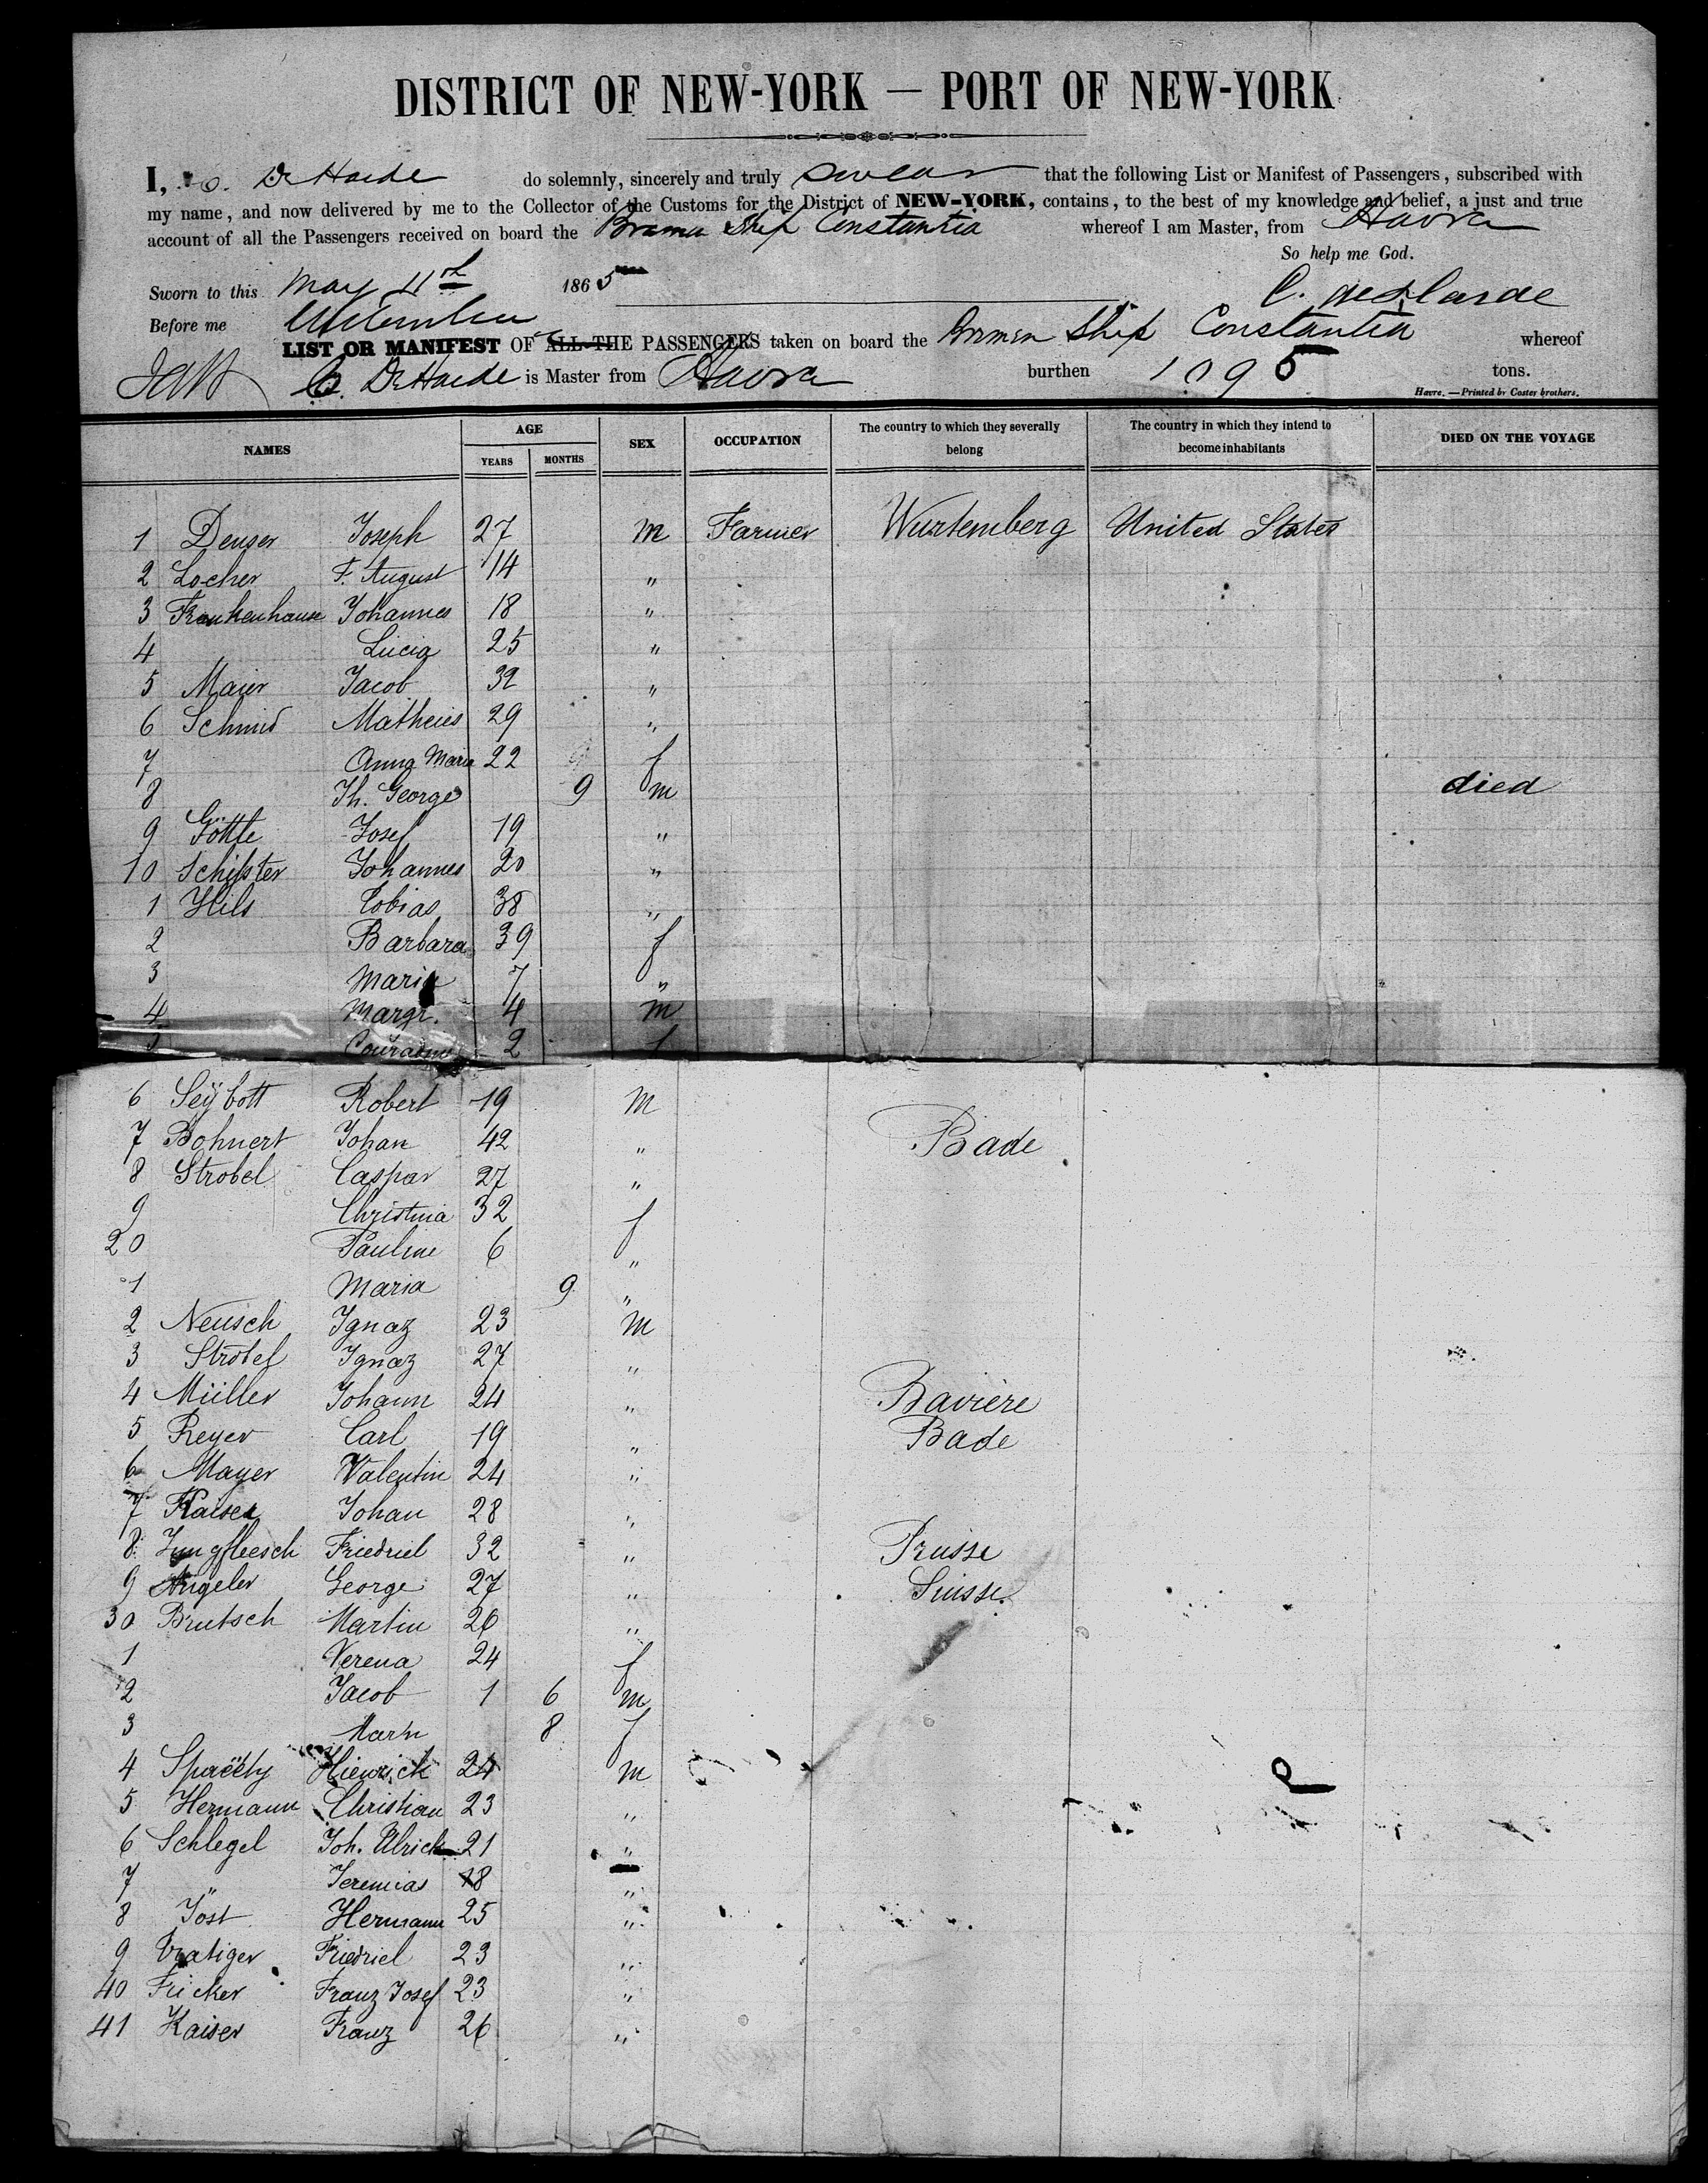 DISTRICT OF NEW-YORK — PORT OF NEW-YORK
I, C. De Harde do solemnly, sincerely and truly swear that the following List or Manifest of Passengers, subscribed with
my name, and now delivered by me to the Collector of the Customs for the District of NEW-YORK, contains, to the best of my knowledge and belief, a just and true
account of all the Passengers received on board the Bremen Ship Constantia whereof I am Master, from Havre
So help me God.
Sworn to this May 11th 1865 C. de Harde
Before me
LIST OR MANIFEST OF ALL THE PASSENGERS taken on board the Bremen Ship Constantia whereof
C. De Harde is Master from Havre burthen 1095 tons.
Havre. — Printed by Coster brothers.
NAMES AGE SEX OCCUPATION The country to which they severally belong The country in which they intend to become inhabitants DIED ON THE VOYAGE
YEARS MONTHS
1 Denser Joseph 27 m Farmer Wurtemberg United States
2 Locher F. August 14 "
3 Frankenhause Johannes 18 "
4 Lucia 25 "
5 Maier Jacob 32 "
6 Schmid Matheus 29 "
7 Anna Maria 22 f
8 Jh. George 9 m died
9 Göttle Josef 19 "
10 Johannes 20 "
1 Hils Tobias 38 "
2 Barbara 39 f
3 Maria 7 "
4 Margr. 4 m
5 2 f
6 Seÿbott Robert 19 m
7 Bohnert Johan 42 " Bade
8 Strobel Caspar 27 "
9 Christina 32 f
20 Pauline 6 "
1 Maria 9 "
2 Neusch Ignaz 23 m
3 Strobel Ignaz 27 "
4 Müller Johann 24 " Bavière
5 Reyer Carl 19 " Bade
6 Mayer Valentin 24 "
7 Kaiser Johan 28 "
8 Jungfleesch Friedriel 32 " Prusse
9 Angeler George 27 " Suisse.
30 Brutsch Martin 26 "
1 Verena 24 f
2 Jacob 1 6 m
3 8 f
4 Hienrich 24 m
5 Hermann Christian 23 "
6 Schlegel Joh. Ulrich 21 "
7 " Jeremias 18 "
8 Jost Hermann 25 "
9 Friedriel 23 "
40 Fricker Franz Josef 23 "
41 Kaiser Franz 26 "